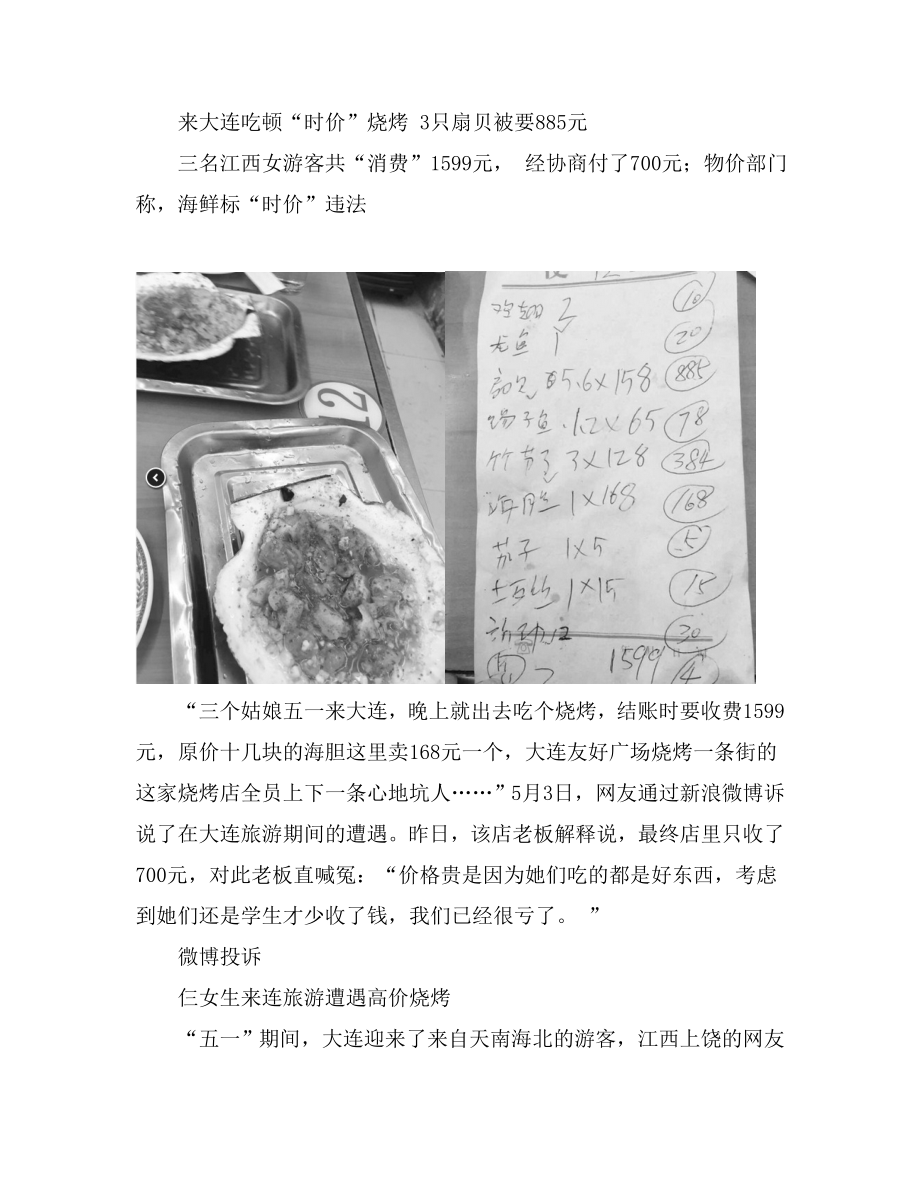 来大连吃顿“时价”烧烤 3只扇贝被要885元
三名江西女游客共“消费”1599元， 经协商付了700元；物价部门
称，海鲜标“时价”违法
2
鸡翅 2 10
尤鱼 1 20
扇贝 5.6×158 885
1.2×65 78
3×128 384
海胆 1×168 168
茄子 1×5 5
土豆丝 1×15 15
12 30
1599 4
“三个姑娘五一来大连，晚上就出去吃个烧烤，结账时要收费1599
元，原价十几块的海胆这里卖168元一个，大连友好广场烧烤一条街的
这家烧烤店全员上下一条心地坑人……”5月3日，网友通过新浪微博诉
说了在大连旅游期间的遭遇。昨日，该店老板解释说，最终店里只收了
700元，对此老板直喊冤：“价格贵是因为她们吃的都是好东西，考虑
到她们还是学生才少收了钱，我们已经很亏了。 ”
微博投诉
仨女生来连旅游遭遇高价烧烤
“五一”期间，大连迎来了来自天南海北的游客，江西上饶的网友